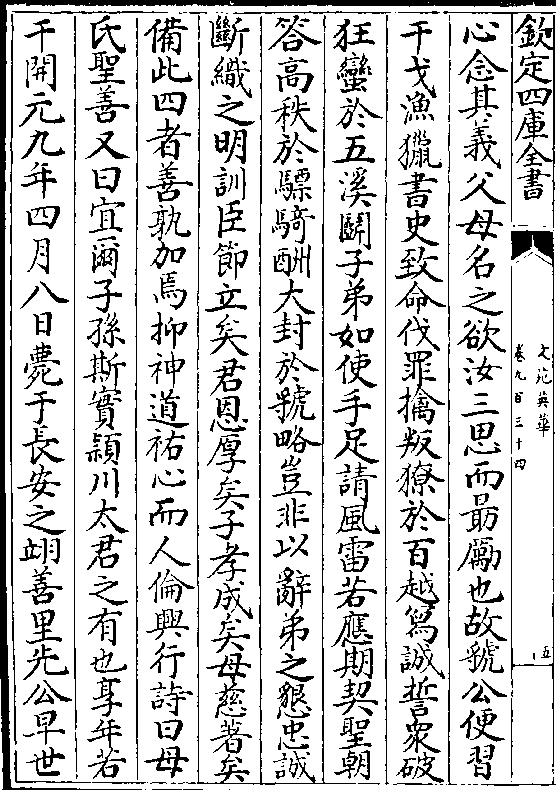 欽定四庫全書
文苑英華
卷九百三十四
五
心念其義父母名之欲汝三思而最勵也故虢公便習
干戈漁獵書史致命伐罪擒叛獠於百越寫誠誓衆破
狂蠻於五溪鬬子弟如使手足請風雷若應期契聖朝
答高秩於驃騎酬大封於虢略豈非以辭弟之懇忠誠
斷織之明訓臣節立矣君恩厚矣子孝成矣母慈著矣
備此四者善孰加焉抑神道祐心而人倫興行詩曰母
氏聖善又曰宜爾子孫斯實潁川太君之有也享年若
干開元九年四月八日薨于長安之翊善里先公早世